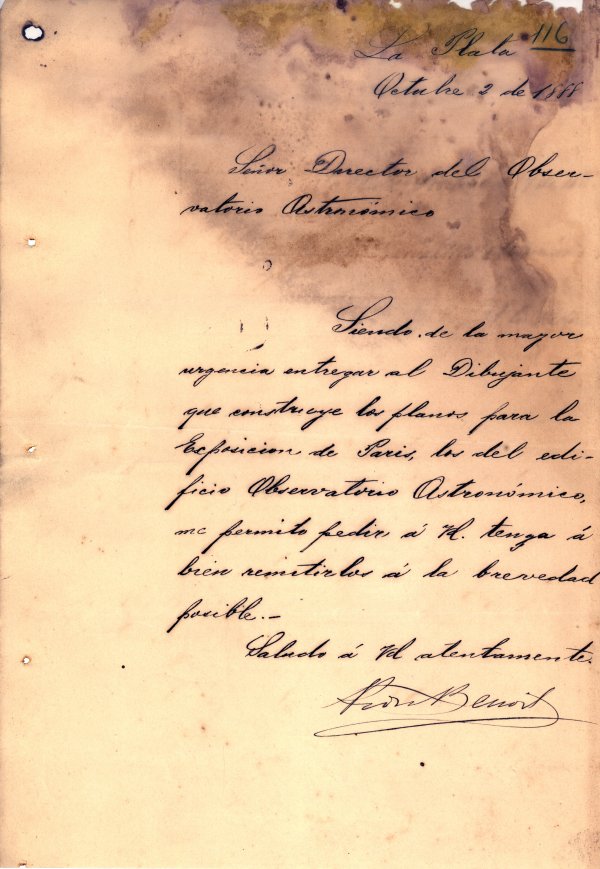 116
La Plata
Octubre 2 de 1888
Señor Director del Obser-
vatorio Astronómico
Siendo de la mayor
urgencia entregar al Dibujante
que construye los planos para la
Exposicion de Paris, los del edi-
ficio Observatorio Astronómico,
me permito pedir á Vd. tenga á
bien remitirlos á la brevedad
posible.–
Saludo á Vd atentamente.
Pedro Benoit